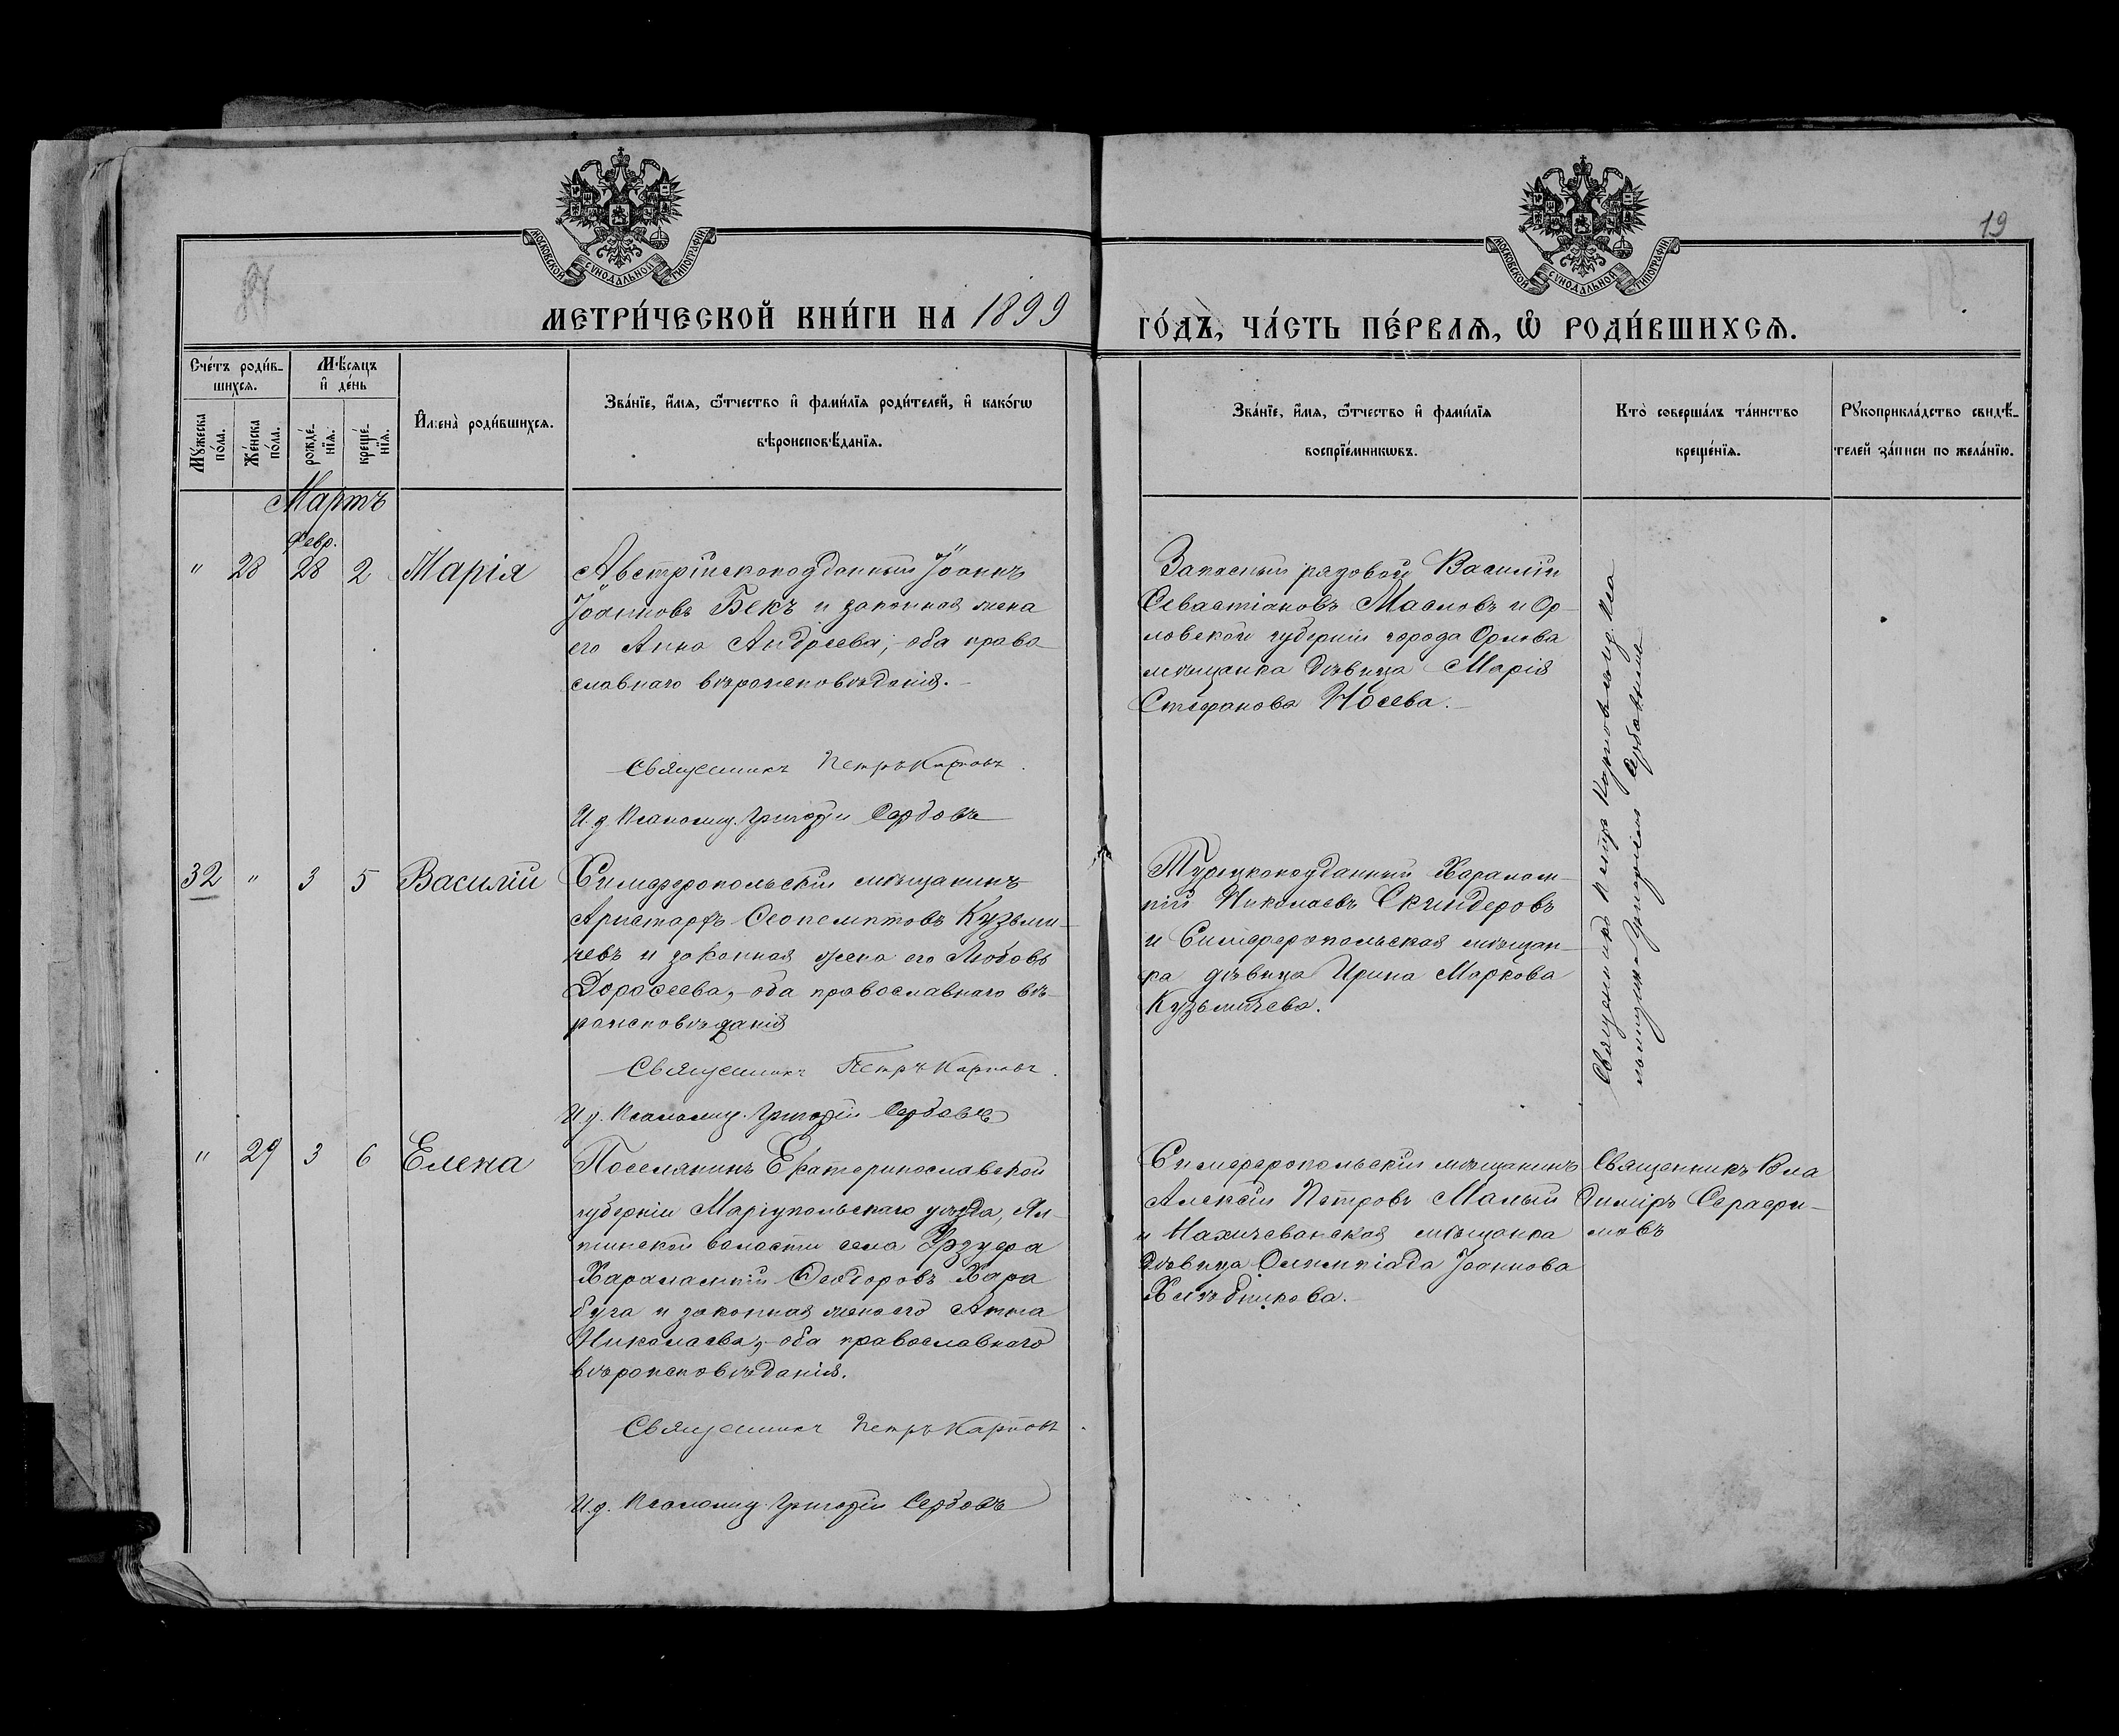 МОСКОВСКОЙ СУНОДАЛЬНОЙ ТИПОГРАФІИ
МОСКОВСКОЙ СУНОДАЛЬНОЙ ТИПОГРАФІИ
19
МЕТРИ́ЧЕСКОЙ КНИ́ГИ НА 1899
ГО́ДЪ, ЧА́СТЬ ПЕ́РВАѦ, Ѽ РОДИ́ВШИХСѦ.
Сче́тъ роди́в-
шихсѧ.
Мꙋ́жеска по́ла.
Же́нска по́ла.
Мѣ́сѧцъ
и҆ де́нь
рожде́-
нїѧ.
креще́-
нїѧ.
И҆мена̀ роди́вшихсѧ.
Зва́нїе, и҆́мѧ, ѻ҆́тчество и҆ фами́лїѧ роди́телей, и҆ како́гѡ
вѣроисповѣ́данїѧ.
Зва́нїе, и҆́мѧ, ѻ҆́тчество и҆ фами́лїѧ
воспрїе́мникѡвъ.
Кто̀ соверша́лъ та́инство
креще́нїѧ.
Рꙋкоприкла́дство свидѣ́-
телей за́писи по жела́нїю.
Мартъ
Февр.
" 28 28 2 Марія
Австрійскоподданный Іоаннъ
Іоанновъ Бекъ и законная жена
его Анна Андреева, оба право
славнаго вѣроисповѣданія.
Священникъ Петръ Карповъ.
И. д. Псаломщ. Григорій Сербовъ
Запасный рядовой Василій
Севастіановъ Масловъ и Ор-
ловской губерніи города Орлова
мѣщанка дѣвица Марія
Стефанова Носева.
Священникъ Петръ Карповъ и. д. Пса
ломщика Григорій Сербовъ
32 " 3 5 Василій
Симферопольскій мѣщанинъ
Аристархъ Ѳеопемптовъ Кузьми-
чевъ и законная жена его Любовь
Дороѳеева, оба православнаго вѣ-
роисповѣданія
Священникъ Петръ Карповъ.
И. д. Псаломщ. Григорій Сербовъ
Турецкоподданный Харалам-
пій Николаевъ Скиндеровъ
и Симферопольская мѣщан-
ка дѣвица Ирина Маркова
Кузьмичева.
" 29 3 6 Елена
Поселянинъ Екатеринославской
губерніи Маріупольскаго уѣзда, Ял-
тинской волости села Урзуфа
Харалампій Ѳеодоровъ Хара
буга и законная жена его Анна
Николаева, оба православнаго
вѣроисповѣданія.
Священникъ Петръ Карповъ.
И. д. Псаломщ. Григорій Сербовъ
Симферопольскій мѣщанинъ
Алексій Петровъ Малый
и Нахичеванская мѣщанка
дѣвица Олимпіада Іоаннова
Хлѣбникова.
Священникъ Вла
диміръ Серафи-
мовъ